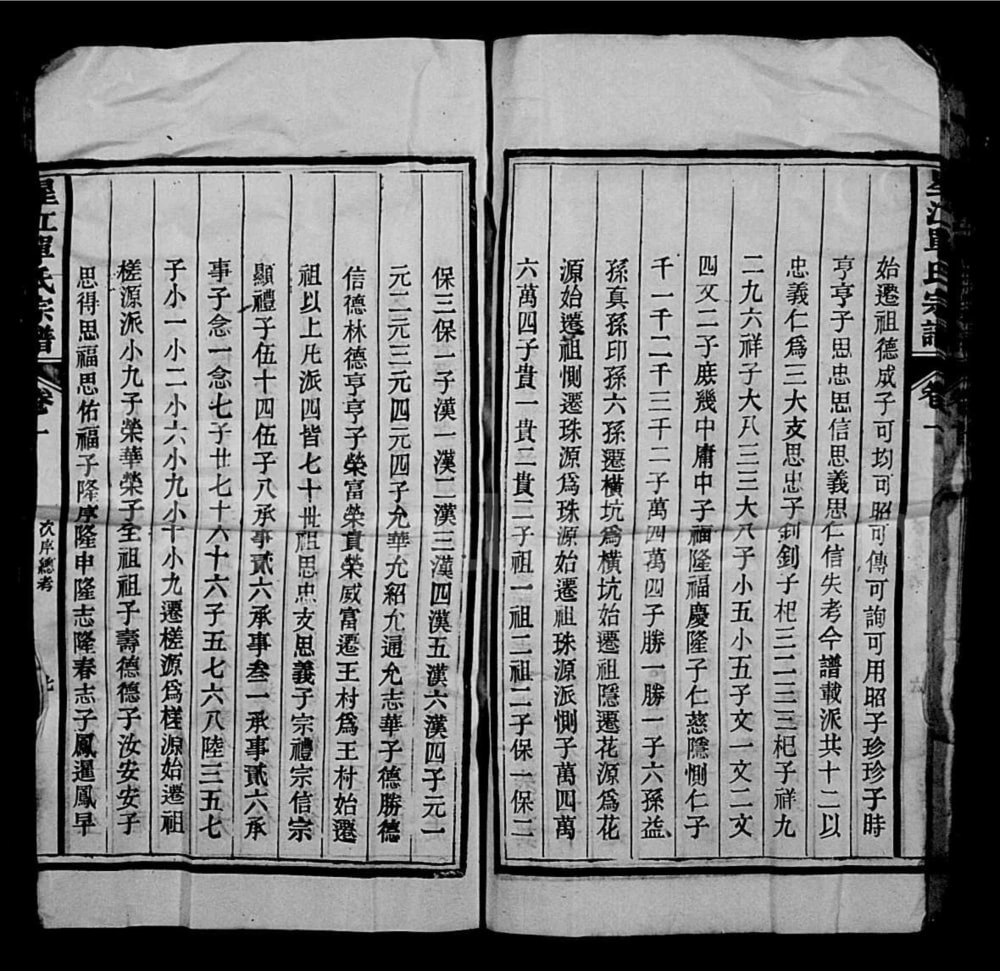 始遷祖德成子可均可昭可傳可詢可用昭子珍珍子時
亨亨子思忠思信思義思仁信失考今譜載派共十二以
忠義仁爲三大支思忠子釗釗子杞三二三三杞子祥九
二九六祥子大八三三大八子小五小五子文一文二文
四文二子庶幾中庸中子福隆福慶隆子仁慈隱惻仁子
千一千二千三千二子萬四萬四子勝一勝一子六孫益
孫真孫印孫六孫遷橫坑爲橫坑始遷祖隱遷花源爲花
源始遷祖惻遷珠源爲珠源始遷祖珠源派惻子萬四萬
六萬四子貴一貴二貴二子祖一祖二祖二子保一保二
保三保一子漢一漢二漢三漢四漢五漢六漢四子元一
元二元三元四元四子允華允紹允通允志華子德勝德
信德林德亨亨子榮富榮貴榮威富遷王村爲王村始遷
祖以上凡派四皆七十世祖思忠支思義子宗禮宗信宗
顯禮子伍十四伍子八承事貳六承事叁一承事貳六承
事子念一念七子廿七十六十六子五七六八陸三五七
子小一小二小六小九小十小九遷槎源爲槎源始遷祖
槎源派小九子榮華榮子全祖祖子壽德德子汝安安子
思得思福思佑福子隆厚隆申隆志隆春志子鳳暹鳳早
星江單氏宗譜
卷一
次序總考